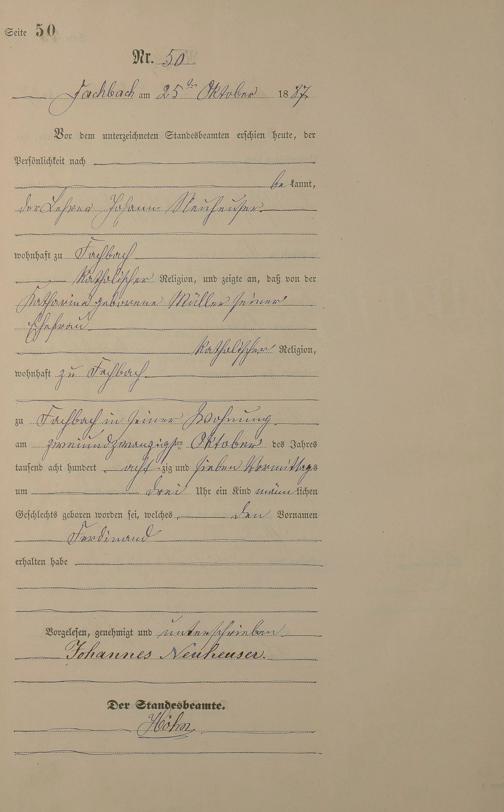 Seite 50
Nr. 50
Fachbach am 25ten Oktober 1887
Vor dem unterzeichneten Standesbeamten erschien heute, der
Persönlichkeit nach
bekannt,
der Lehrer Johann Neuheuser
wohnhaft zu Fachbach
katholischer Religion, und zeigte an, daß von der
Katharina geborene Müller seiner
Ehefrau
katholischer Religion,
wohnhaft zu Fachbach
zu Fachbach in seiner Wohnung
am zweiundzwanzigsten Oktober des Jahres
tausend acht hundert achtzig und sieben Vormittags
um drei Uhr ein Kind männlichen
Geschlechts geboren worden sei, welches den Vornamen
Ferdinand
erhalten habe
Vorgelesen, genehmigt und unterschrieben
Johannes Neuheuser.
Der Standesbeamte.
Höhn